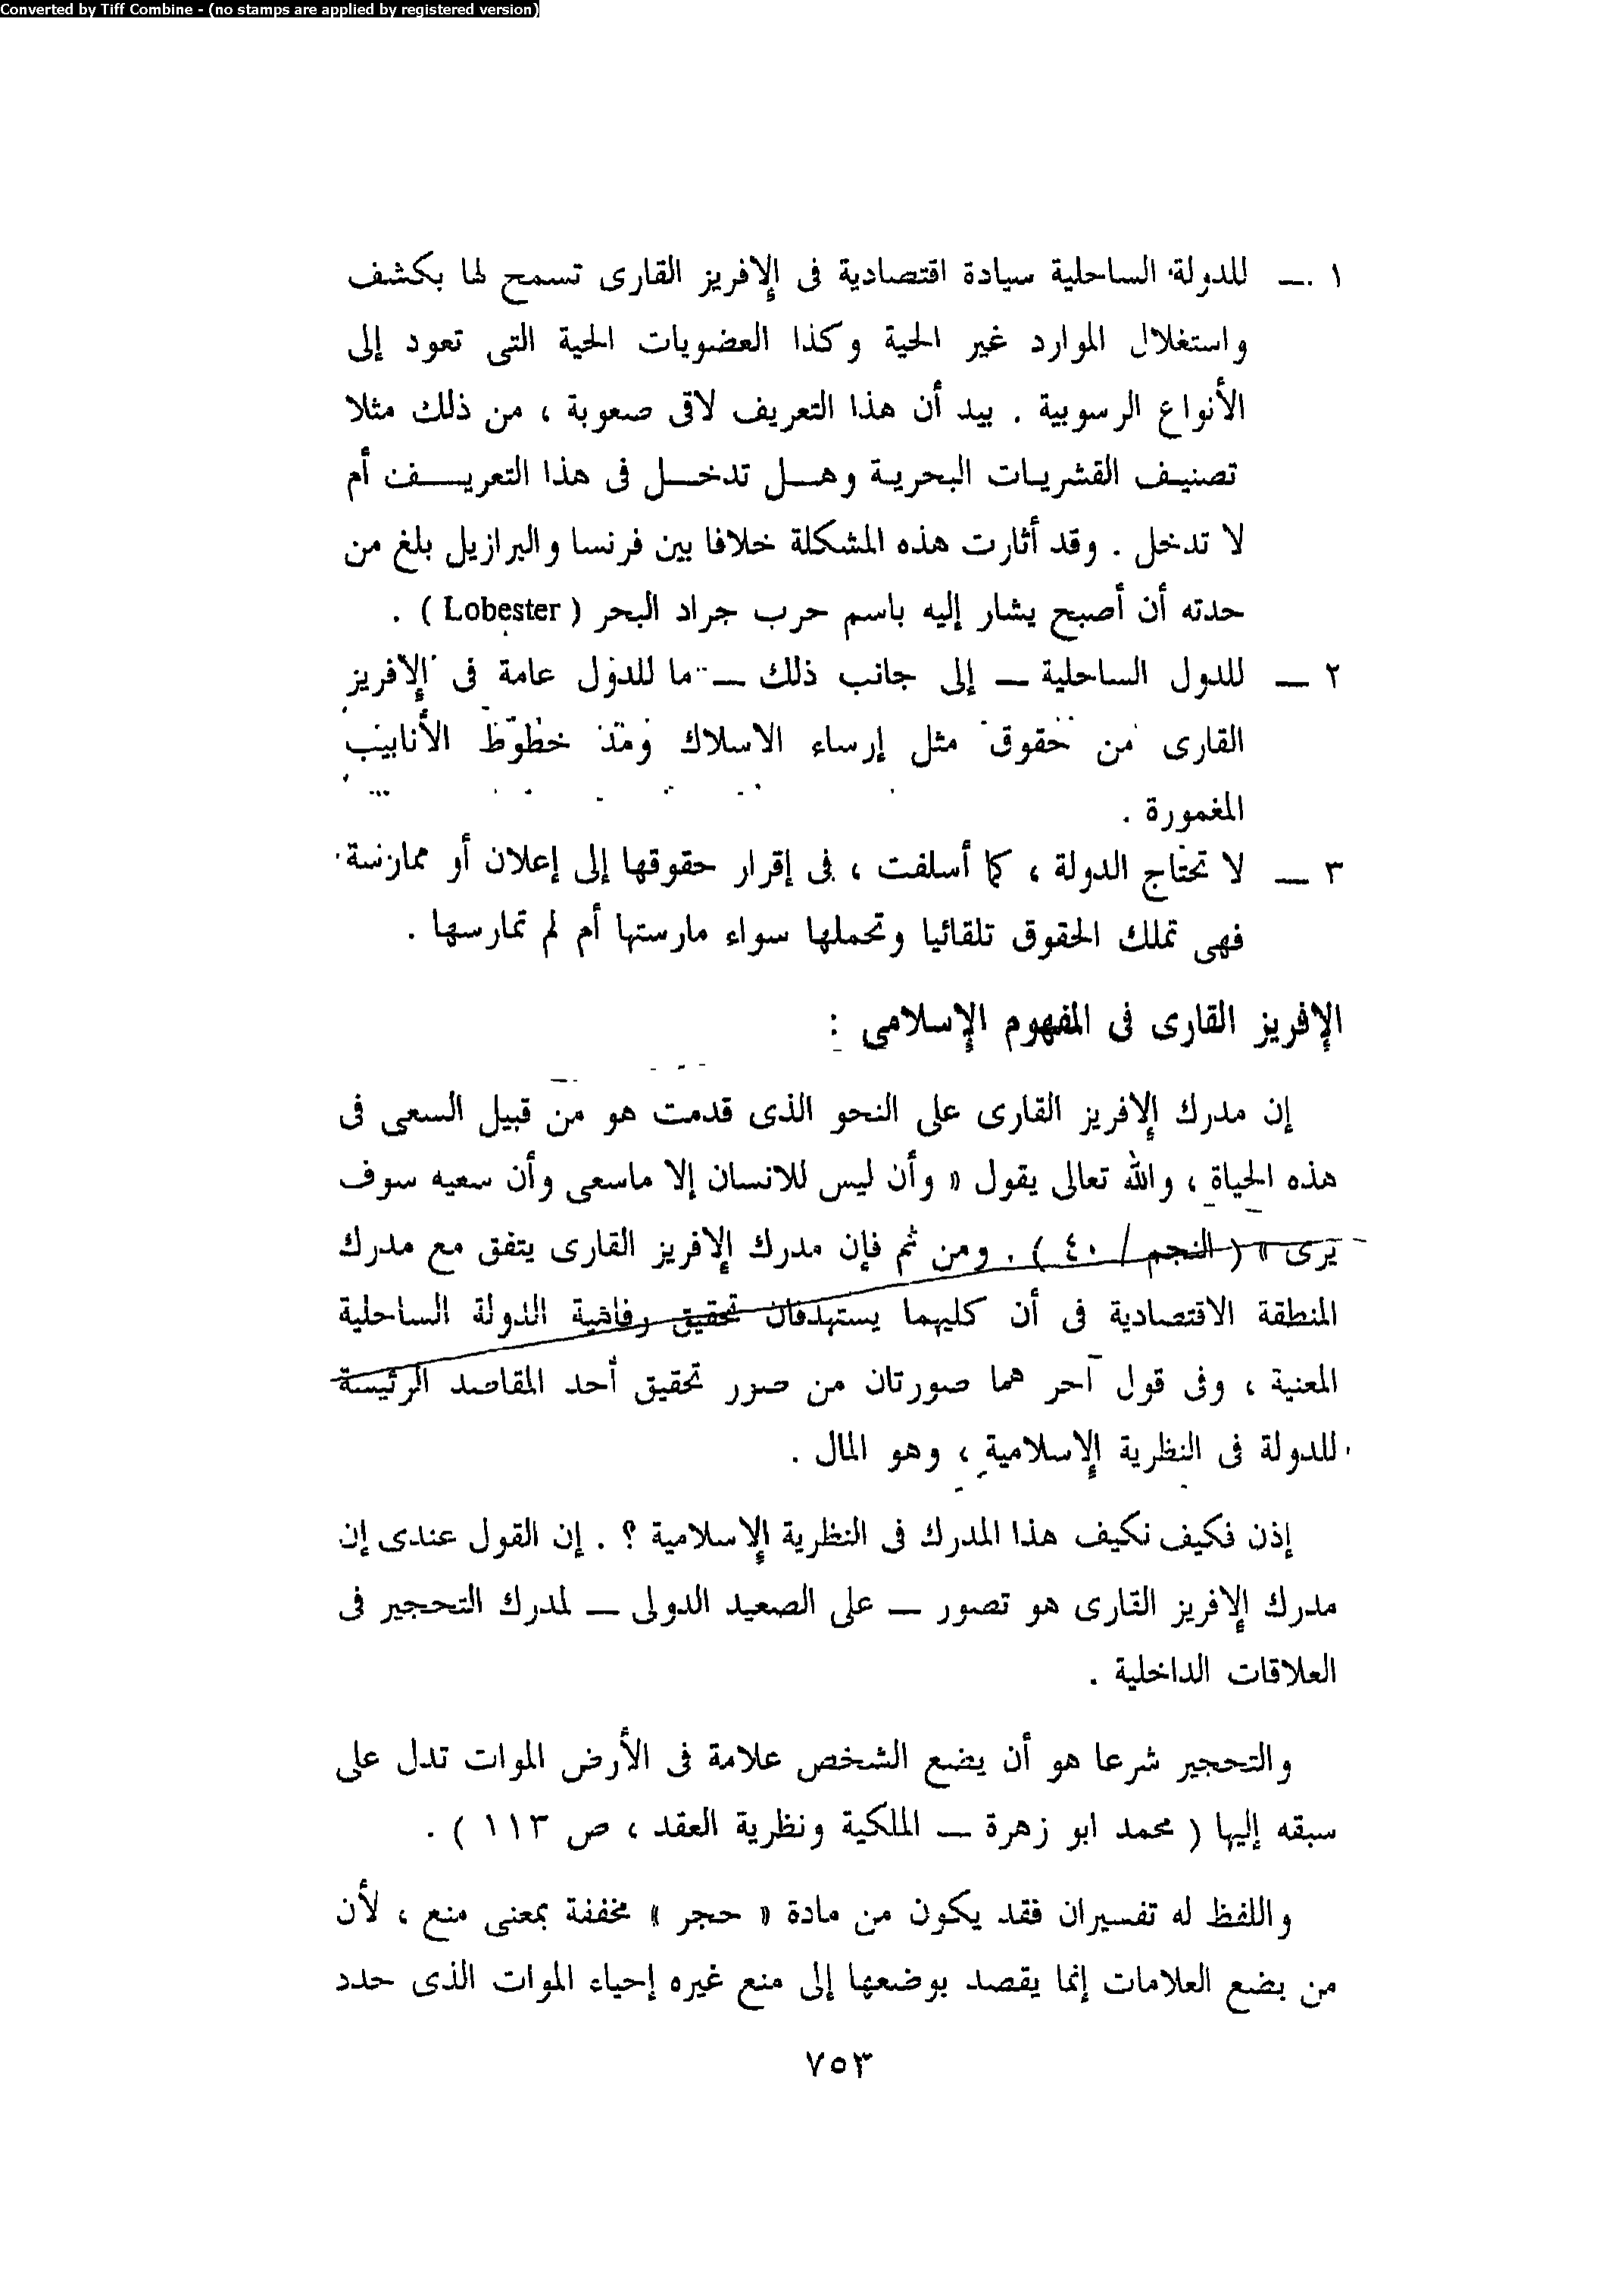 Converted by Tiff Combine - (no stamps are applied by registered version)
١ — للدولة الساحلية سيادة اقتصادية فى الإفريز القارى تسمح لها بكشف
واستغلال الموارد غير الحية وكذا العضويات الحية التى تعود إلى
الأنواع الرسوبية . بيد أن هذا التعريف لاقى صعوبة ، من ذلك مثلا
تصنيف القشريات البحرية وهل تدخل فى هذا التعريف أم
لا تدخل . وقد أثارت هذه المشكلة خلافا بين فرنسا والبرازيل بلغ من
حدته أن أصبح يشار إليه باسم حرب جراد البحر ( Lobester ) .
٢ — للدول الساحلية — إلى جانب ذلك — ما للدول عامة فى الإفريز
القارى من حقوق مثل إرساء الاسلاك ومد خطوط الأنابيب
المغمورة .
٣ — لا تحتاج الدولة ، كما أسلفت ، فى إقرار حقوقها إلى إعلان أو ممارسة
فهى تملك الحقوق تلقائيا وتحملها سواء مارستها أم لم تمارسها .
الإفريز القارى فى المفهوم الإسلامى :
إن مدرك الإفريز القارى على النحو الذى قدمت هو من قبيل السعى فى
هذه الحياة ، والله تعالى يقول « وأن ليس للانسان إلا ماسعى وأن سعيه سوف
يرى » ( النجم / ٤٠ ) . ومن ثم فإن مدرك الإفريز القارى يتفق مع مدرك
المنطقة الاقتصادية فى أن كليهما يستهدفان تحقيق رفاهية الدولة الساحلية
المعنية ، وفى قول آحر هما صورتان من صور تحقيق أحد المقاصد الرئيسة
للدولة فى النظرية الإسلامية ، وهو المال .
إذن فكيف نكيف هذا المدرك فى النظرية الإسلامية ؟ . إن القول عندى إن
مدرك الإفريز القارى هو تصور — على الصعيد الدولى — لمدرك التحجير فى
العلاقات الداخلية .
والتحجير شرعا هو أن يضع الشخص علامة فى الأرض الموات تدل على
سبقه إليها ( محمد ابو زهرة — الملكية ونظرية العقد ، ص ١١٣ ) .
واللفظ له تفسيران فقد يكون من مادة « حجر » مخففة بمعنى منع ، لأن
من يضع العلامات إنما يقصد بوضعها إلى منع غيره إحياء الموات الذى حدد
٧٥٣